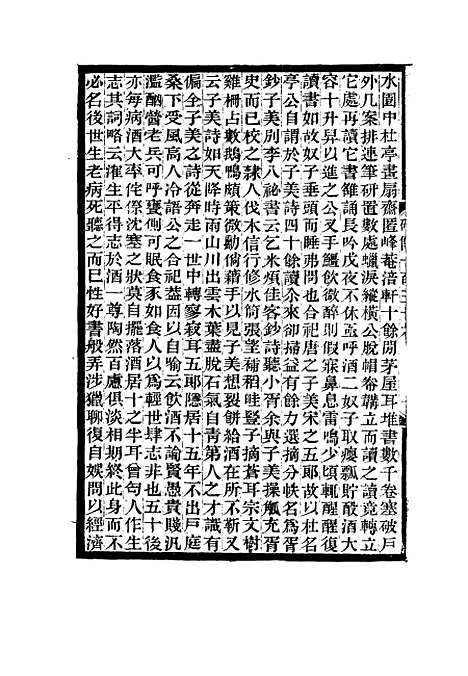 水圍中杜亭畫扇齋匿峰菴涪軒十餘間茅屋耳堆書數千卷塞破戶
外几案排連筆研置數處蠟淚縱橫公脫帽卷韝立而讀之讀竟轉立
它處再讀它書雒誦長吟戊夜不休亟呼酒二奴子取癭瓢貯酘酒大
容十升舁以進之叉手釂飲微醉則假寐鼻息雷鳴少頃輒醒醒復
讀書如故奴子垂頭而睡弗問也合祀唐之子美宋之五耶故以杜名
亭公自謂於子美詩四十餘讀尒來卻掃益有餘力選摘分帙名爲胥
鈔子美別李八祕書云乞米煩佳客鈔詩聽小胥余與子美操觚充胥
史而已校之隸人伐木信行修水筒張望補稻畦豎子摘蒼耳宗文樹
雞柵占數鵝鴨頗策微勳倘藉手以見子美想殘餠給酒在所不靳又
云子美詩如天降時雨山川出雲木葉盡脫石氣自靑第人之才識有
偏全子美之詩從奔走一世中轉寥寂耳五耶隱居十五年不出戶庭
桑下受風高人冷語公之合祀葢因以自喻云飲酒不論賢愚貴賤汎
濫酗醟老兵可呼甕側可眠食豕如食人以爲輕世肆志非也五十後
亦每病酒大率侘傺沈塞之狀莫自擺落酒居十之半耳曾句人作生
志其詞略云淮生平得志於酒一尊陶然百慮俱淡相期終此身而不
必名後世生老病死聽之而已性好書般弄涉獵聊復自娛問以經濟